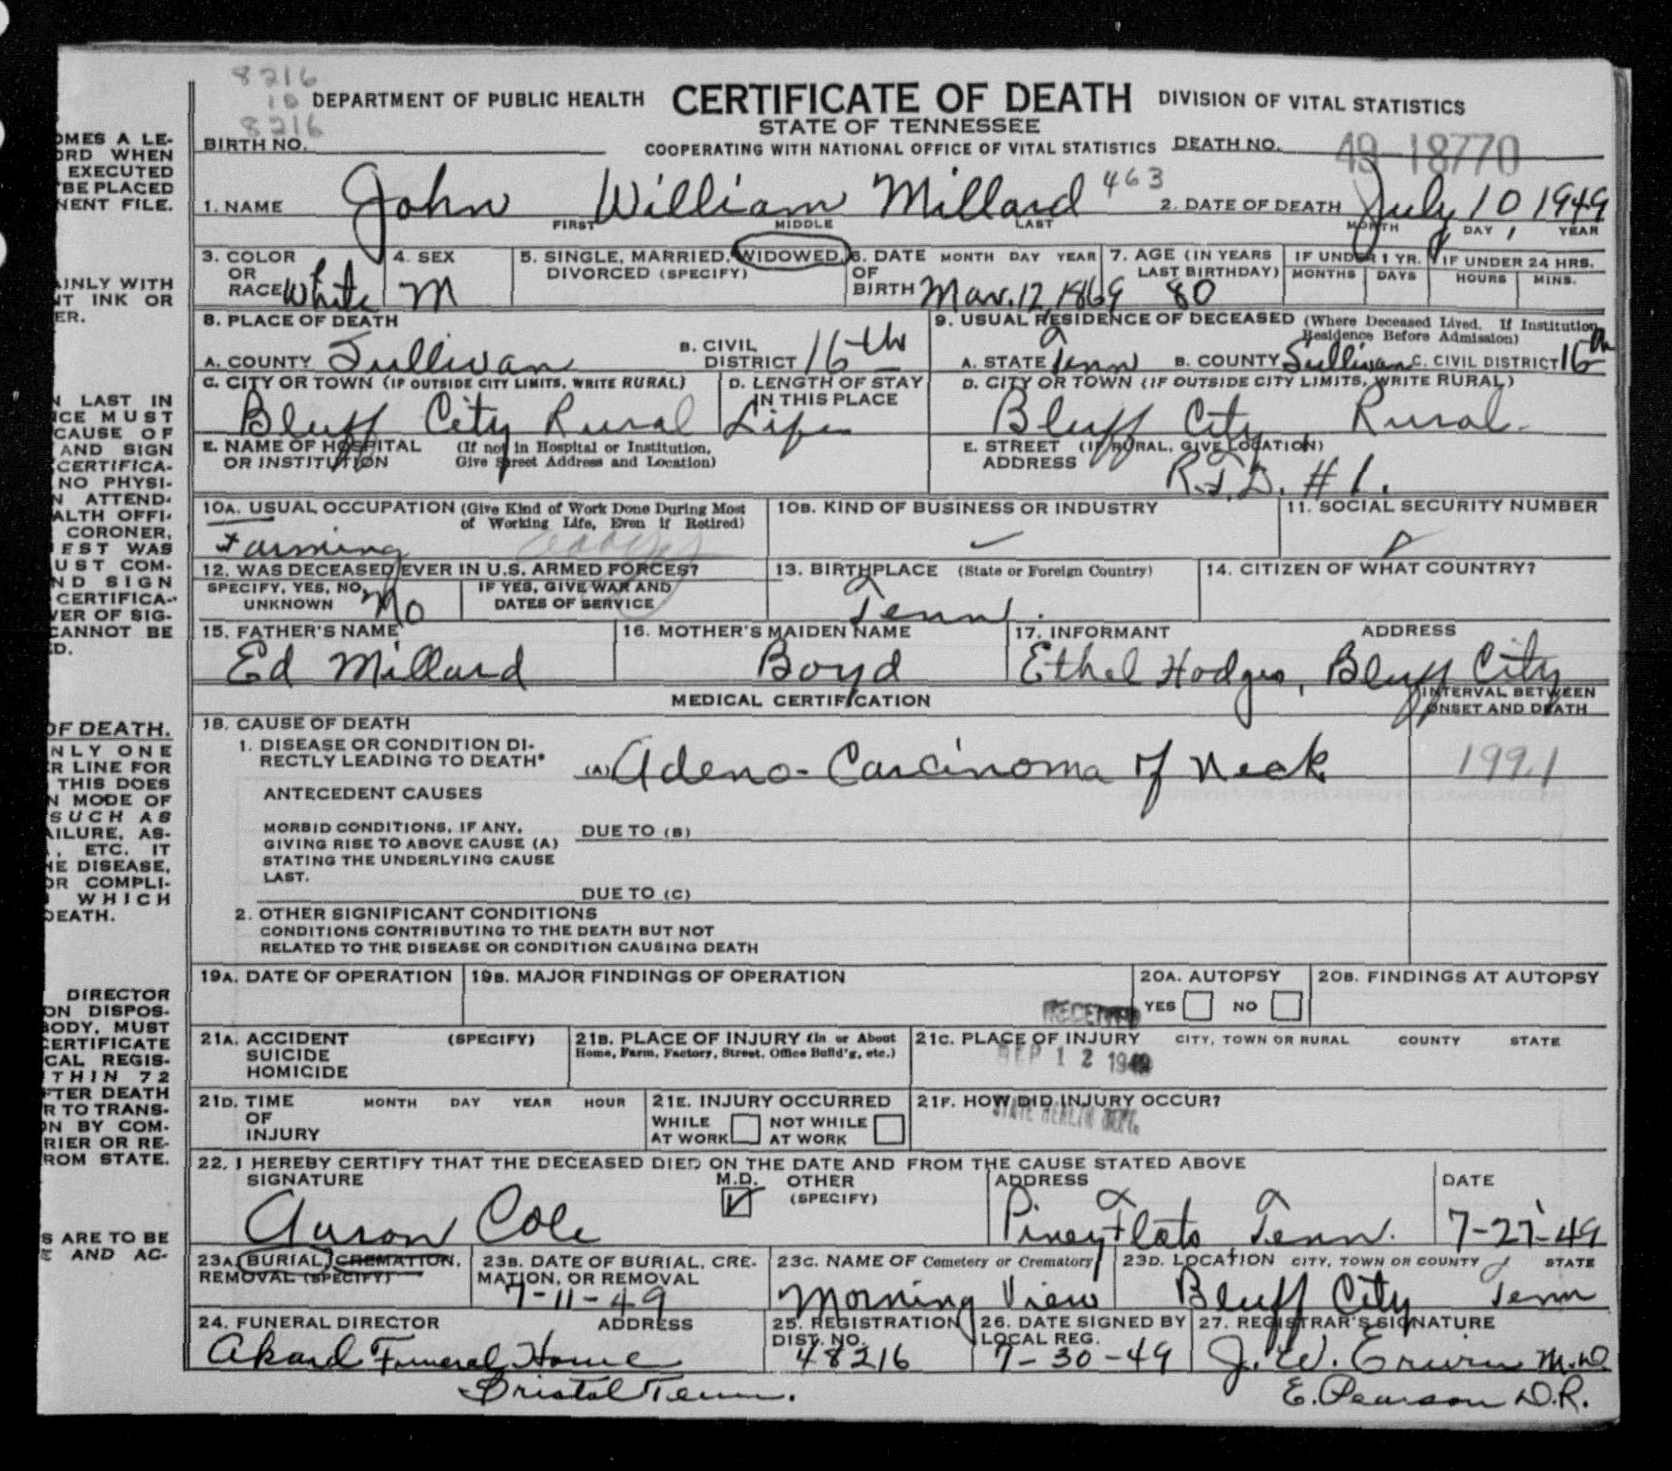 8216
10
8216
DEPARTMENT OF PUBLIC HEALTH CERTIFICATE OF DEATH DIVISION OF VITAL STATISTICS
STATE OF TENNESSEE
BIRTH NO. COOPERATING WITH NATIONAL OFFICE OF VITAL STATISTICS DEATH NO. 49-18770
1. NAME John William Millard 463 2. DATE OF DEATH July 10 1949
FIRST MIDDLE LAST MONTH DAY YEAR
3. COLOR OR RACE White 4. SEX M 5. SINGLE, MARRIED, WIDOWED, DIVORCED (SPECIFY) 6. DATE OF BIRTH MONTH DAY YEAR Mar. 12, 1869 7. AGE (IN YEARS LAST BIRTHDAY) 80 IF UNDER 1 YR. MONTHS DAYS IF UNDER 24 HRS. HOURS MINS.
8. PLACE OF DEATH 9. USUAL RESIDENCE OF DECEASED (Where Deceased Lived. If Institution Residence Before Admission)
A. COUNTY Sullivan B. CIVIL DISTRICT 16th A. STATE Tenn B. COUNTY Sullivan C. CIVIL DISTRICT 16th
C. CITY OR TOWN (IF OUTSIDE CITY LIMITS, WRITE RURAL) D. LENGTH OF STAY IN THIS PLACE D. CITY OR TOWN (IF OUTSIDE CITY LIMITS, WRITE RURAL)
Bluff City Rural Life Bluff City Rural.
E. NAME OF HOSPITAL OR INSTITUTION (If not in Hospital or Institution, Give Street Address and Location) E. STREET ADDRESS (IF RURAL, GIVE LOCATION)
R.F.D. #1.
10A. USUAL OCCUPATION (Give Kind of Work Done During Most of Working Life, Even if Retired) 10B. KIND OF BUSINESS OR INDUSTRY 11. SOCIAL SECURITY NUMBER
Farming
12. WAS DECEASED EVER IN U.S. ARMED FORCES? 13. BIRTHPLACE (State or Foreign Country) 14. CITIZEN OF WHAT COUNTRY?
SPECIFY, YES, NO, UNKNOWN No IF YES, GIVE WAR AND DATES OF SERVICE Tenn.
15. FATHER'S NAME 16. MOTHER'S MAIDEN NAME 17. INFORMANT ADDRESS
Ed Millard Boyd Ethel Hodges, Bluff City
MEDICAL CERTIFICATION INTERVAL BETWEEN ONSET AND DEATH
18. CAUSE OF DEATH
1. DISEASE OR CONDITION DIRECTLY LEADING TO DEATH* (A) Adeno-Carcinoma of Neck 199.1
ANTECEDENT CAUSES
MORBID CONDITIONS, IF ANY, GIVING RISE TO ABOVE CAUSE (A) STATING THE UNDERLYING CAUSE LAST.
DUE TO (B)
DUE TO (C)
2. OTHER SIGNIFICANT CONDITIONS
CONDITIONS CONTRIBUTING TO THE DEATH BUT NOT
RELATED TO THE DISEASE OR CONDITION CAUSING DEATH
19A. DATE OF OPERATION 19B. MAJOR FINDINGS OF OPERATION 20A. AUTOPSY 20B. FINDINGS AT AUTOPSY
RECEIVED YES NO
21A. ACCIDENT SUICIDE HOMICIDE (SPECIFY) 21B. PLACE OF INJURY (In or About Home, Farm, Factory, Street, Office Build'g, etc.) 21C. PLACE OF INJURY CITY, TOWN OR RURAL COUNTY STATE
SEP 12 1949
21D. TIME OF INJURY MONTH DAY YEAR HOUR 21E. INJURY OCCURRED 21F. HOW DID INJURY OCCUR?
WHILE AT WORK NOT WHILE AT WORK STATE HEALTH DEPT.
22. I HEREBY CERTIFY THAT THE DECEASED DIED ON THE DATE AND FROM THE CAUSE STATED ABOVE
SIGNATURE M.D. OTHER (SPECIFY) ADDRESS DATE
Aaron Cole Piney Flats Tenn. 7-27-49
23A. BURIAL, CREMATION, REMOVAL (SPECIFY) 23B. DATE OF BURIAL, CREMATION, OR REMOVAL 23C. NAME OF Cemetery or Crematory 23D. LOCATION CITY, TOWN OR COUNTY STATE
7-11-49 Morning View Bluff City Tenn
24. FUNERAL DIRECTOR ADDRESS 25. REGISTRATION DIST. NO. 26. DATE SIGNED BY LOCAL REG. 27. REGISTRAR'S SIGNATURE
Akard Funeral Home 48216 7-30-49 J. W. Erwin M.D.
Bristol Tenn. E. Pearson D.R.
OMES A LE-
ORD WHEN
EXECUTED
BE PLACED
NENT FILE.
AINLY WITH
NT INK OR
ER.
N LAST IN
NCE MUST
CAUSE OF
AND SIGN
CERTIFICA-
NO PHYSI-
N ATTEND-
ALTH OFFI-
CORONER,
EST WAS
UST COM-
ND SIGN
CERTIFICA-
VER OF SIG-
CANNOT BE
D.
OF DEATH.
NLY ONE
R LINE FOR
THIS DOES
N MODE OF
SUCH AS
AILURE, AS-
, ETC. IT
HE DISEASE,
OR COMPLI-
WHICH
DEATH.
DIRECTOR
ON DISPOS-
BODY, MUST
CERTIFICATE
CAL REGIS-
THIN 72
FTER DEATH
R TO TRANS-
ON BY COM-
RIER OR RE-
ROM STATE.
S ARE TO BE
E AND AC-